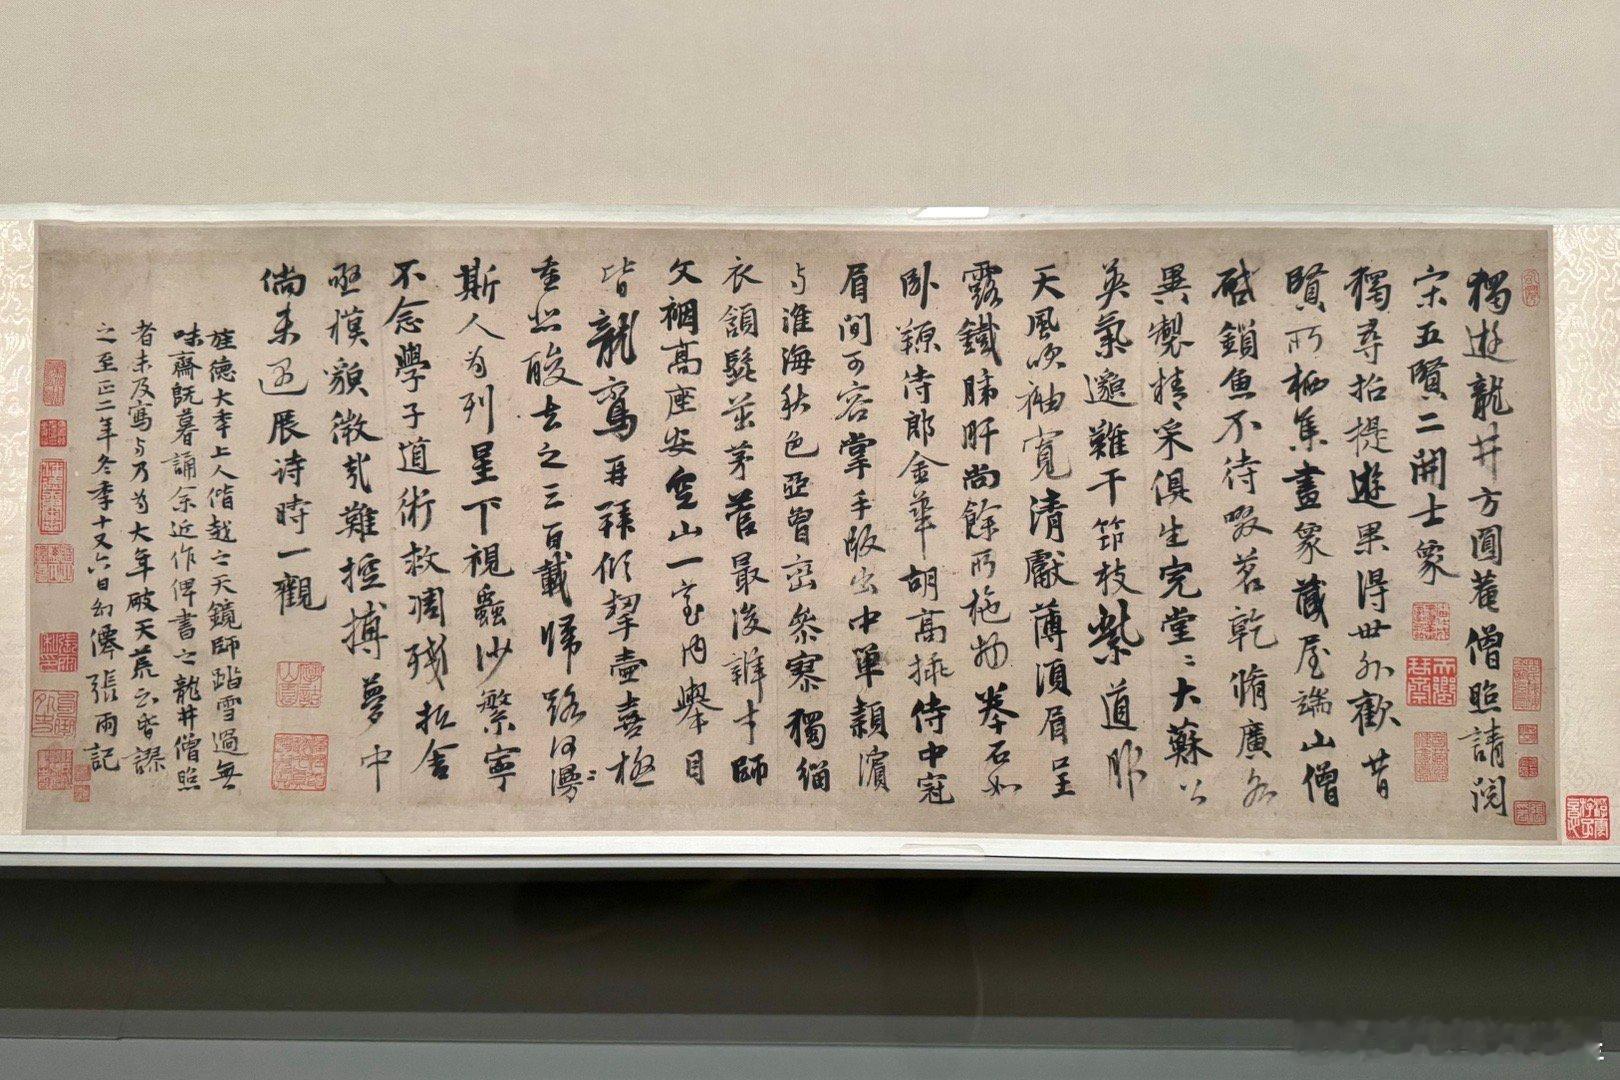 獨遊龍井方圓菴僧照請閱
宋五賢二開士象
獨尋招提遊果得世外歡昔
賢所栖集畫象藏屋端山僧
啟鎖魚不待啜茗乾脩廣各
異製精采俱生完堂堂大蘇公
英氣邈難干笻枝紫道服
天風吹袖寬清獻薄須眉呈
露鐵肺肝尚餘所施物拳石如
臥羱侍郎金華胡高捸侍中冠
眉間可容掌手版出中單潁濱
与淮海秋色亞曾巒參寥獨緇
衣頷髭並茅菅最後辯才師
文裀高座安空山一室內舉目
皆龍鸞再拜倾挈壺喜極
重悲酸去之三百載歸路何漫漫
斯人为列星下視蟲沙繁寧
不念學子道術救凋殘拈舍
亟模貌微茫難摶夢中
倘未遇展诗時一觀
旌德大年上人偕越之天鏡師踏雪過無
味齋既暮誦余近作俾書之龍井僧照
者未及寫与乃为大年破天荒云皆謬
之至正二年冬季十又六日幻僊張雨記